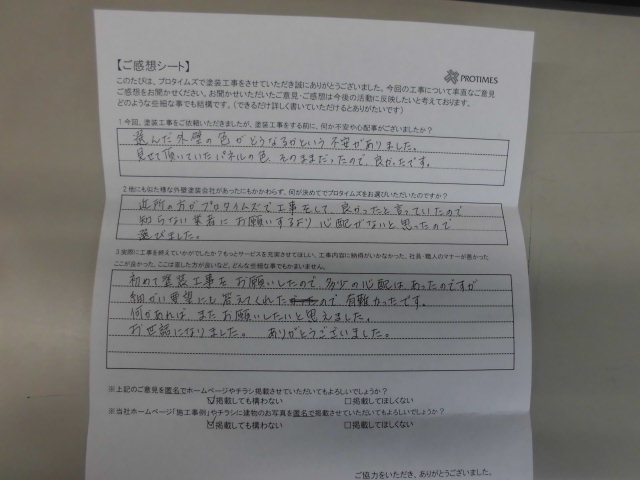 【ご感想シート】
PROTIMES
このたびは、プロタイムズで塗装工事をさせていただき誠にありがとうございました。今回の工事について率直なご意見
ご感想をお聞かせください。お聞かせいただいたご意見・ご感想は今後の活動に反映したいと考えております。
どのような些細な事でも結構です。(できるだけ詳しく書いていただけるとありがたいです)
1 今回、塗装工事をご依頼いただきましたが、塗装工事をする前に、何か不安や心配事がございましたか？
選んだ外壁の色がどうなるかという不安がありました。
見せて頂いていたパネルの色、そのままだったので、良かったです。
2 他にも似た様な外壁塗装会社があったにもかかわらず、何が決めてでプロタイムズをお選びいただいたのですか？
近所の方がプロタイムズで工事をして、良かったと言っていたので
知らない業者にお願いするより心配がないと思ったので
選びました。
3 実際に工事を終えていかがでしたか？もっとサービスを充実させてほしい、工事内容に納得がいかなかった、社長・職人のマナーが悪かった
ここが良かった、ここは直した方が良いなど、どんな些細な事でもかまいません。
初めて塗装工事をお願いしたので、多少の心配はあったのですが
細かい要望にも答えてくれたので有難かったです。
何かあれば、またお願いしたいと思えました。
お世話になりました。 ありがとうございました。
※上記のご意見を匿名でホームページやチラシ掲載させていただいてもよろしいでしょうか？
☑掲載しても構わない □掲載してほしくない
※当社ホームページ「施工事例」やチラシに建物のお写真を匿名で掲載させていただいてもよろしいでしょうか？
☑掲載しても構わない □掲載してほしくない
ご協力をいただき、ありがとうございました。